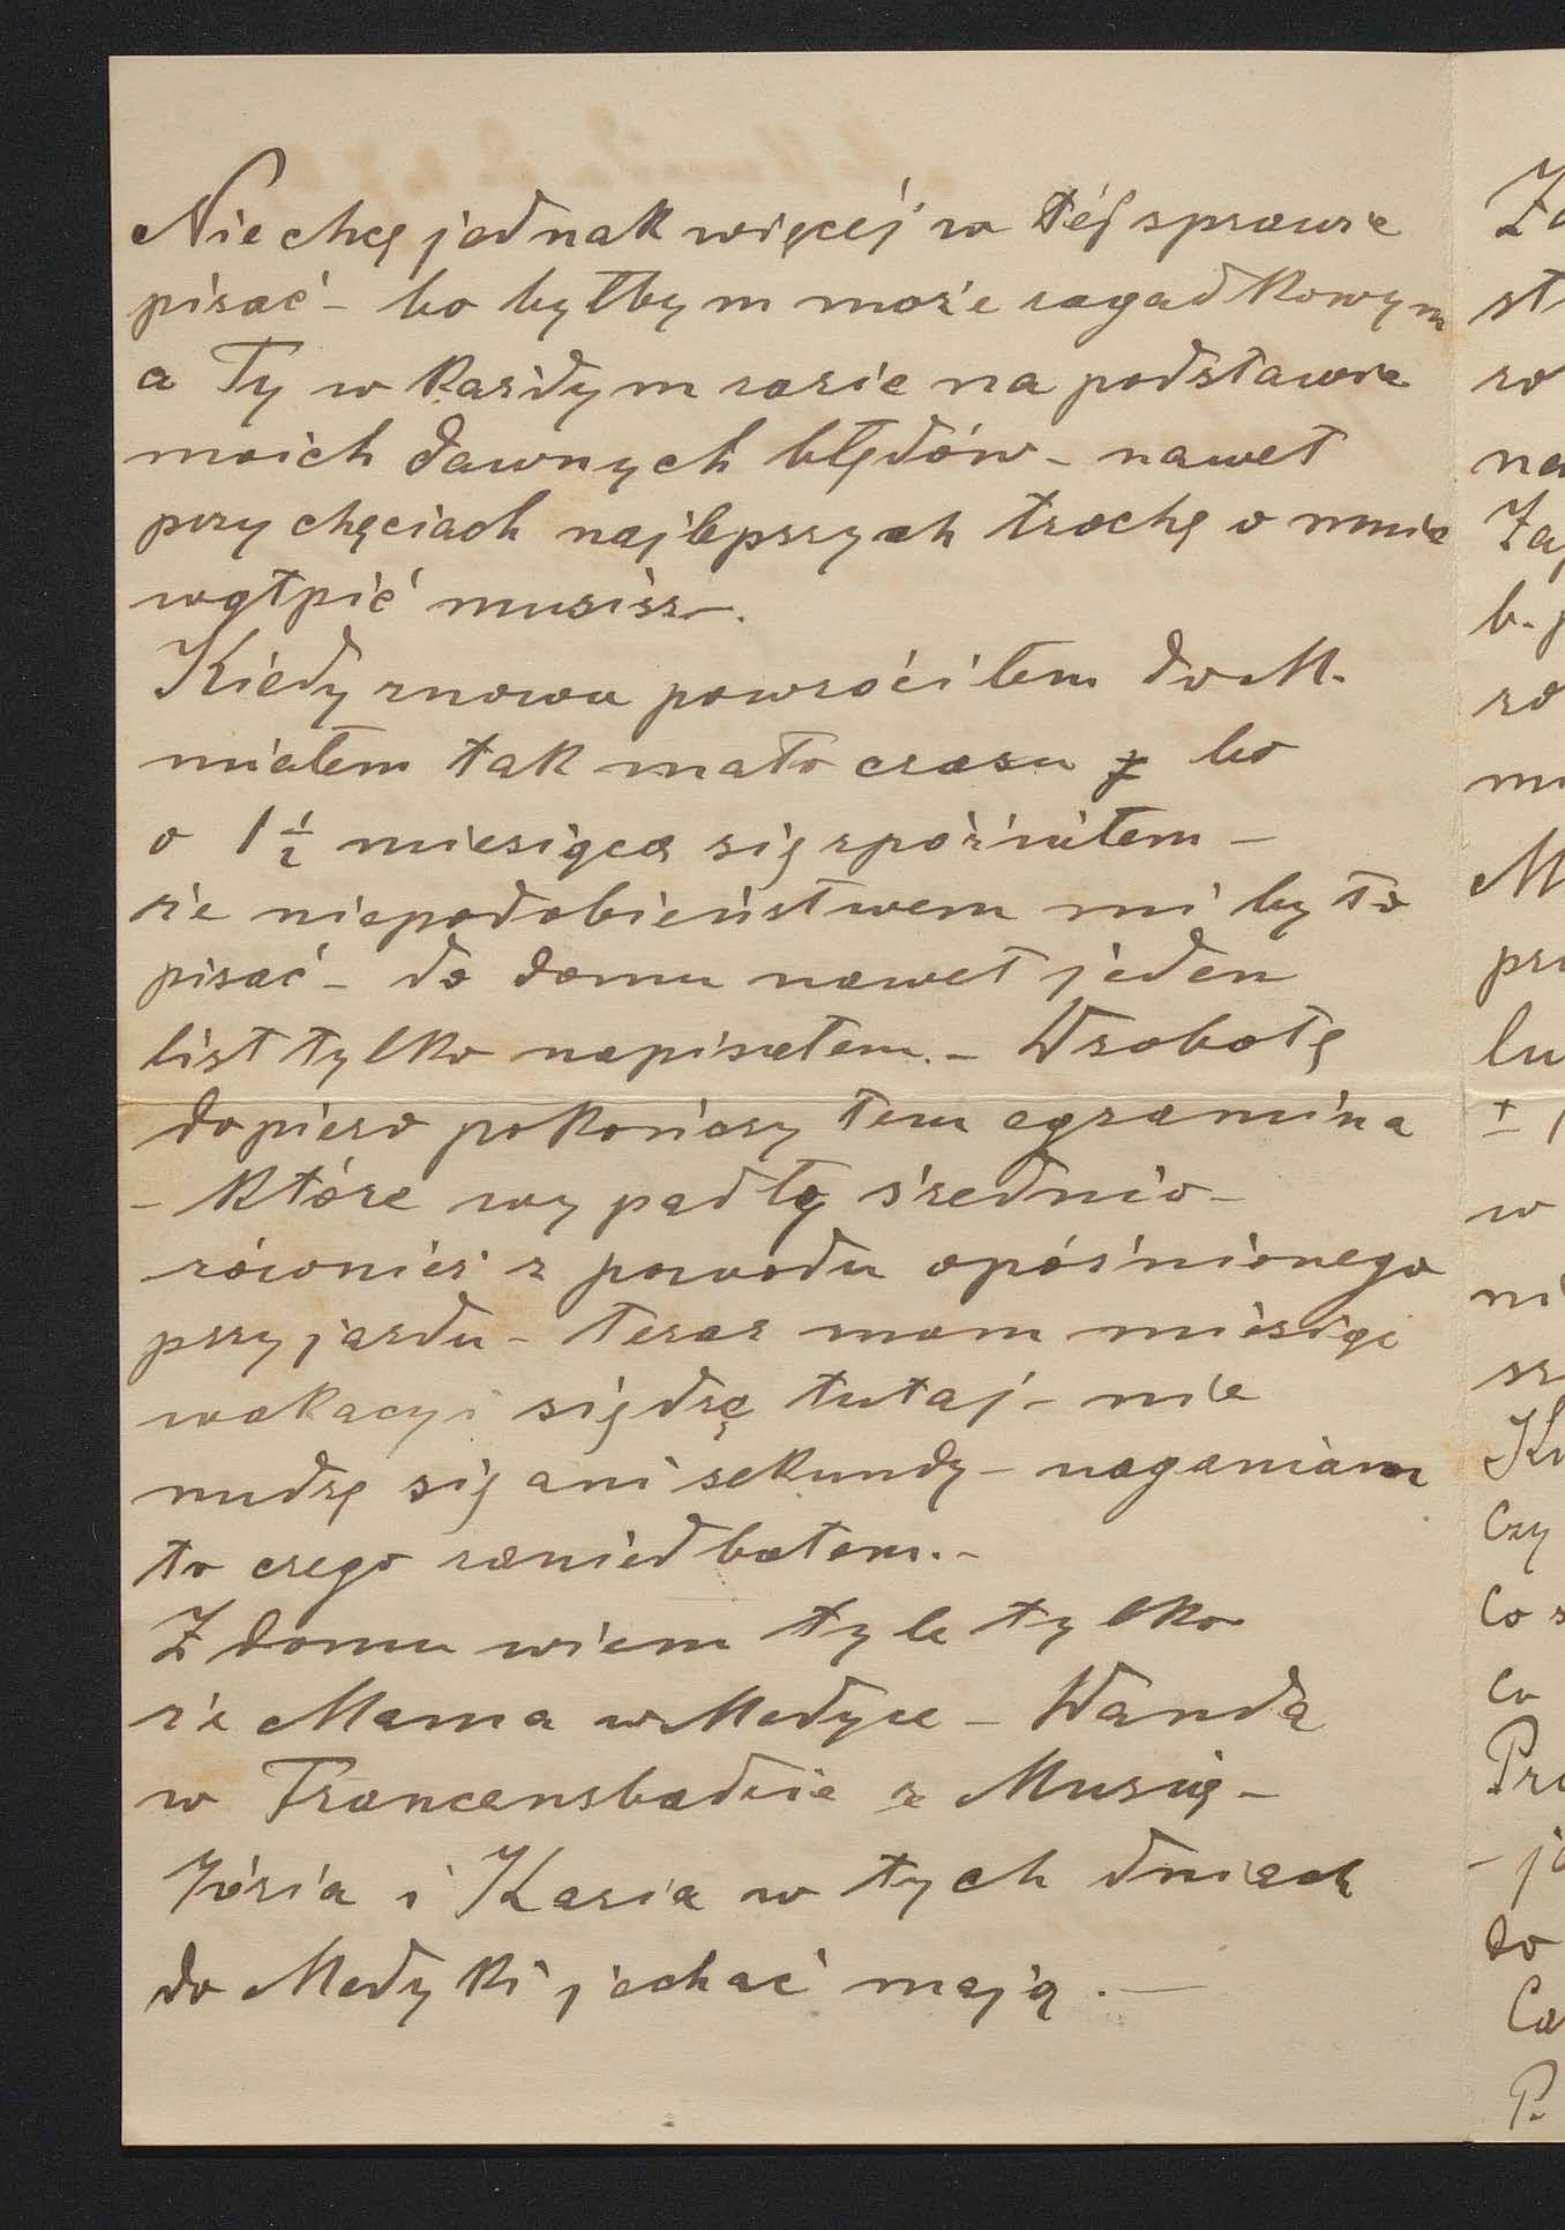 Nie chcę jednak więcéj w téj sprawie
pisać – bo byłbym może zagadkowym
a Ty w każdym razie na podstawie
moich dawnych błędów – nawet
przy chęciach najlepszych trochę o mnie
wątpić musisz –.
Kiedy znowu powróciłem do M.
miałem tak mało czasu bo
o 1½ miesiąca się spóźniłem –
że niepodobieństwem mi było
pisać – do domu nawet jeden
list tylko napisałem. – W sobotę
dopiero pokończyłem egzamina
– które wypadły średnio –
również z powodu opóźnionego
przyjazdu – teraz mam miesiąc
wakacyi siędzę tutaj – nie
nudzę się ani sekundy – naganiam
to czego zaniedbałem. –
Z domu wiem tyle tylko
że Mama w Medyce – Wanda
w Francensbadzie z Musią –
Józia i Kazia w tych dniach
do Medyki jechać mają. –